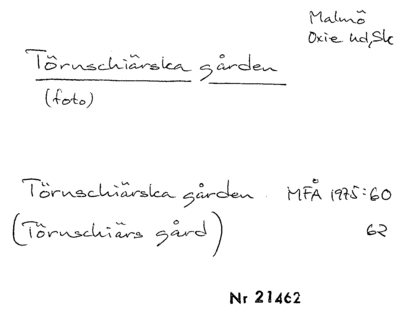 Malmö
Oxie hd, Sk
Törnschiärska gården
(foto)
Törnschiärska gården. MFÅ 1975:60
(Törnschiärs gård) 62
Nr 21462